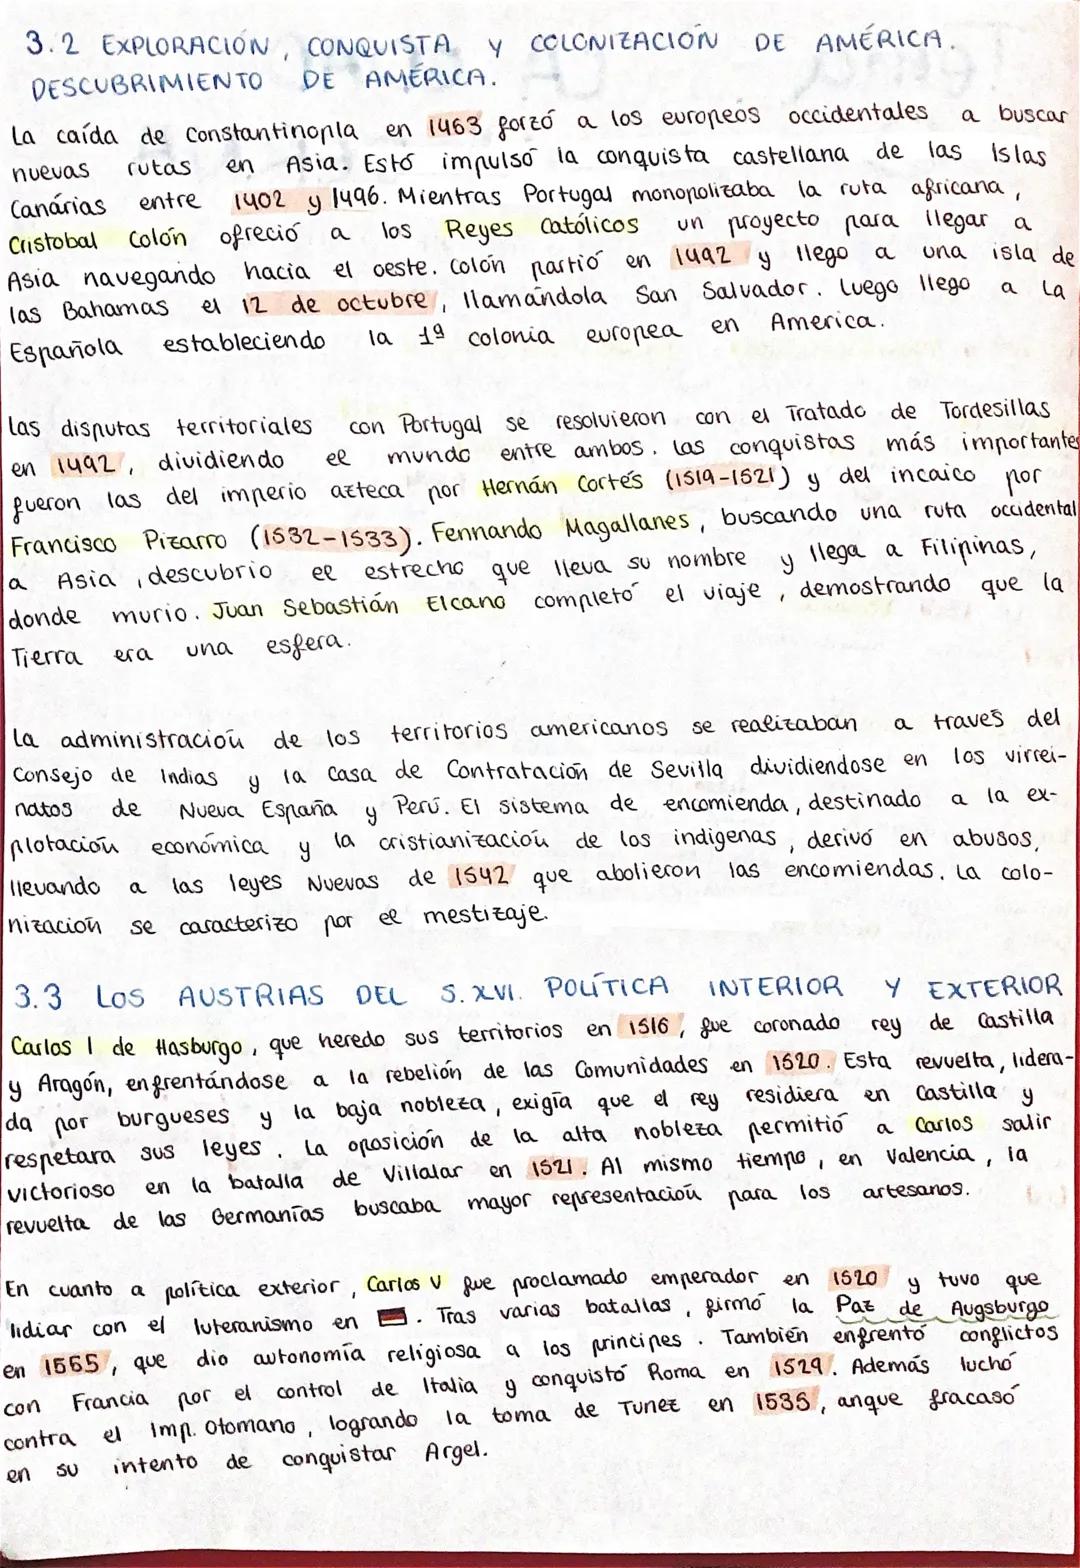 3.2 EXPLORACIÓN, CONQUISTA Y COLONIZACIÓN DE AMÉRICA.
DESCUBRIMIENTO DE AMÉRICA.
La caída de Constantinopla en 1463 forzó a los europeos occidentales a buscar
nuevas rutas en Asia. Estó impulsó la conquista castellana de las Islas
Canárias entre 1402 y 1496. Mientras Portugal monopolizaba la ruta africana,
Cristobal Colón ofreció a los Reyes Católicos un proyecto para llegar a
Asia navegando hacia el oeste. Colón partió en 1492 y llego a una isla de
las Bahamas el 12 de octubre, llamándola San Salvador. Luego llego a La
Española estableciendo la 1ª colonia europea en America.
Las disputas territoriales con Portugal se resolvieron con el Tratado de Tordesillas
en 1492, dividiendo el mundo entre ambos. Las conquistas más importantes
fueron las del imperio azteca por Hernán Cortés (1519-1521) y del incaico por
Francisco Pizarro (1532-1533). Fernnando Magallanes, buscando una ruta occidental
a Asia, descubrio el estrecho que lleva su nombre y llega a Filipinas,
donde murio. Juan Sebastián Elcano completó el viaje, demostrando que la
Tierra era una esfera.
La administración de los territorios americanos se realizaban a través del
Consejo de Indias y la Casa de Contratación de Sevilla dividiendose en los virrei-
natos de Nueva España y Perú. El sistema de encomienda, destinado a la ex-
plotación económica y la cristianización de los indigenas, derivó en abusos,
llevando a las leyes Nuevas de 1542 que abolieron las encomiendas. La colo-
nización se caracterizo por el mestizaje.
3.3 LOS AUSTRIAS DEL S.XVI. POLÍTICA INTERIOR Y EXTERIOR
Carlos I de Hasburgo, que heredo sus territorios en 1516, fue coronado rey de Castilla
y Aragón, enfrentándose a la rebelión de las Comunidades en 1520. Esta revuelta, lidera-
da por burgueses y la baja nobleza, exigía que el rey residiera en Castilla y
respetara sus leyes. La oposición de la alta nobleza permitió a Carlos salir
victorioso en la batalla de Villalar en 1521. Al mismo tiempo, en Valencia, la
revuelta de las Germanías buscaba mayor representación para los artesanos.
En cuanto a política exterior, Carlos V fue proclamado emperador en 1520 y tuvo que
lidiar con el luteranismo en . Tras varias batallas, firmó la Paz de Augsburgo
en 1555, que dio autonomía religiosa a los principes. También enfrentó conflictos
con Francia por el control de Italia y conquistó Roma en 1529. Además luchó
contra el Imp. Otomano, logrando la toma de Tunez en 1535, anque fracasó
en su intento de conquistar Argel.